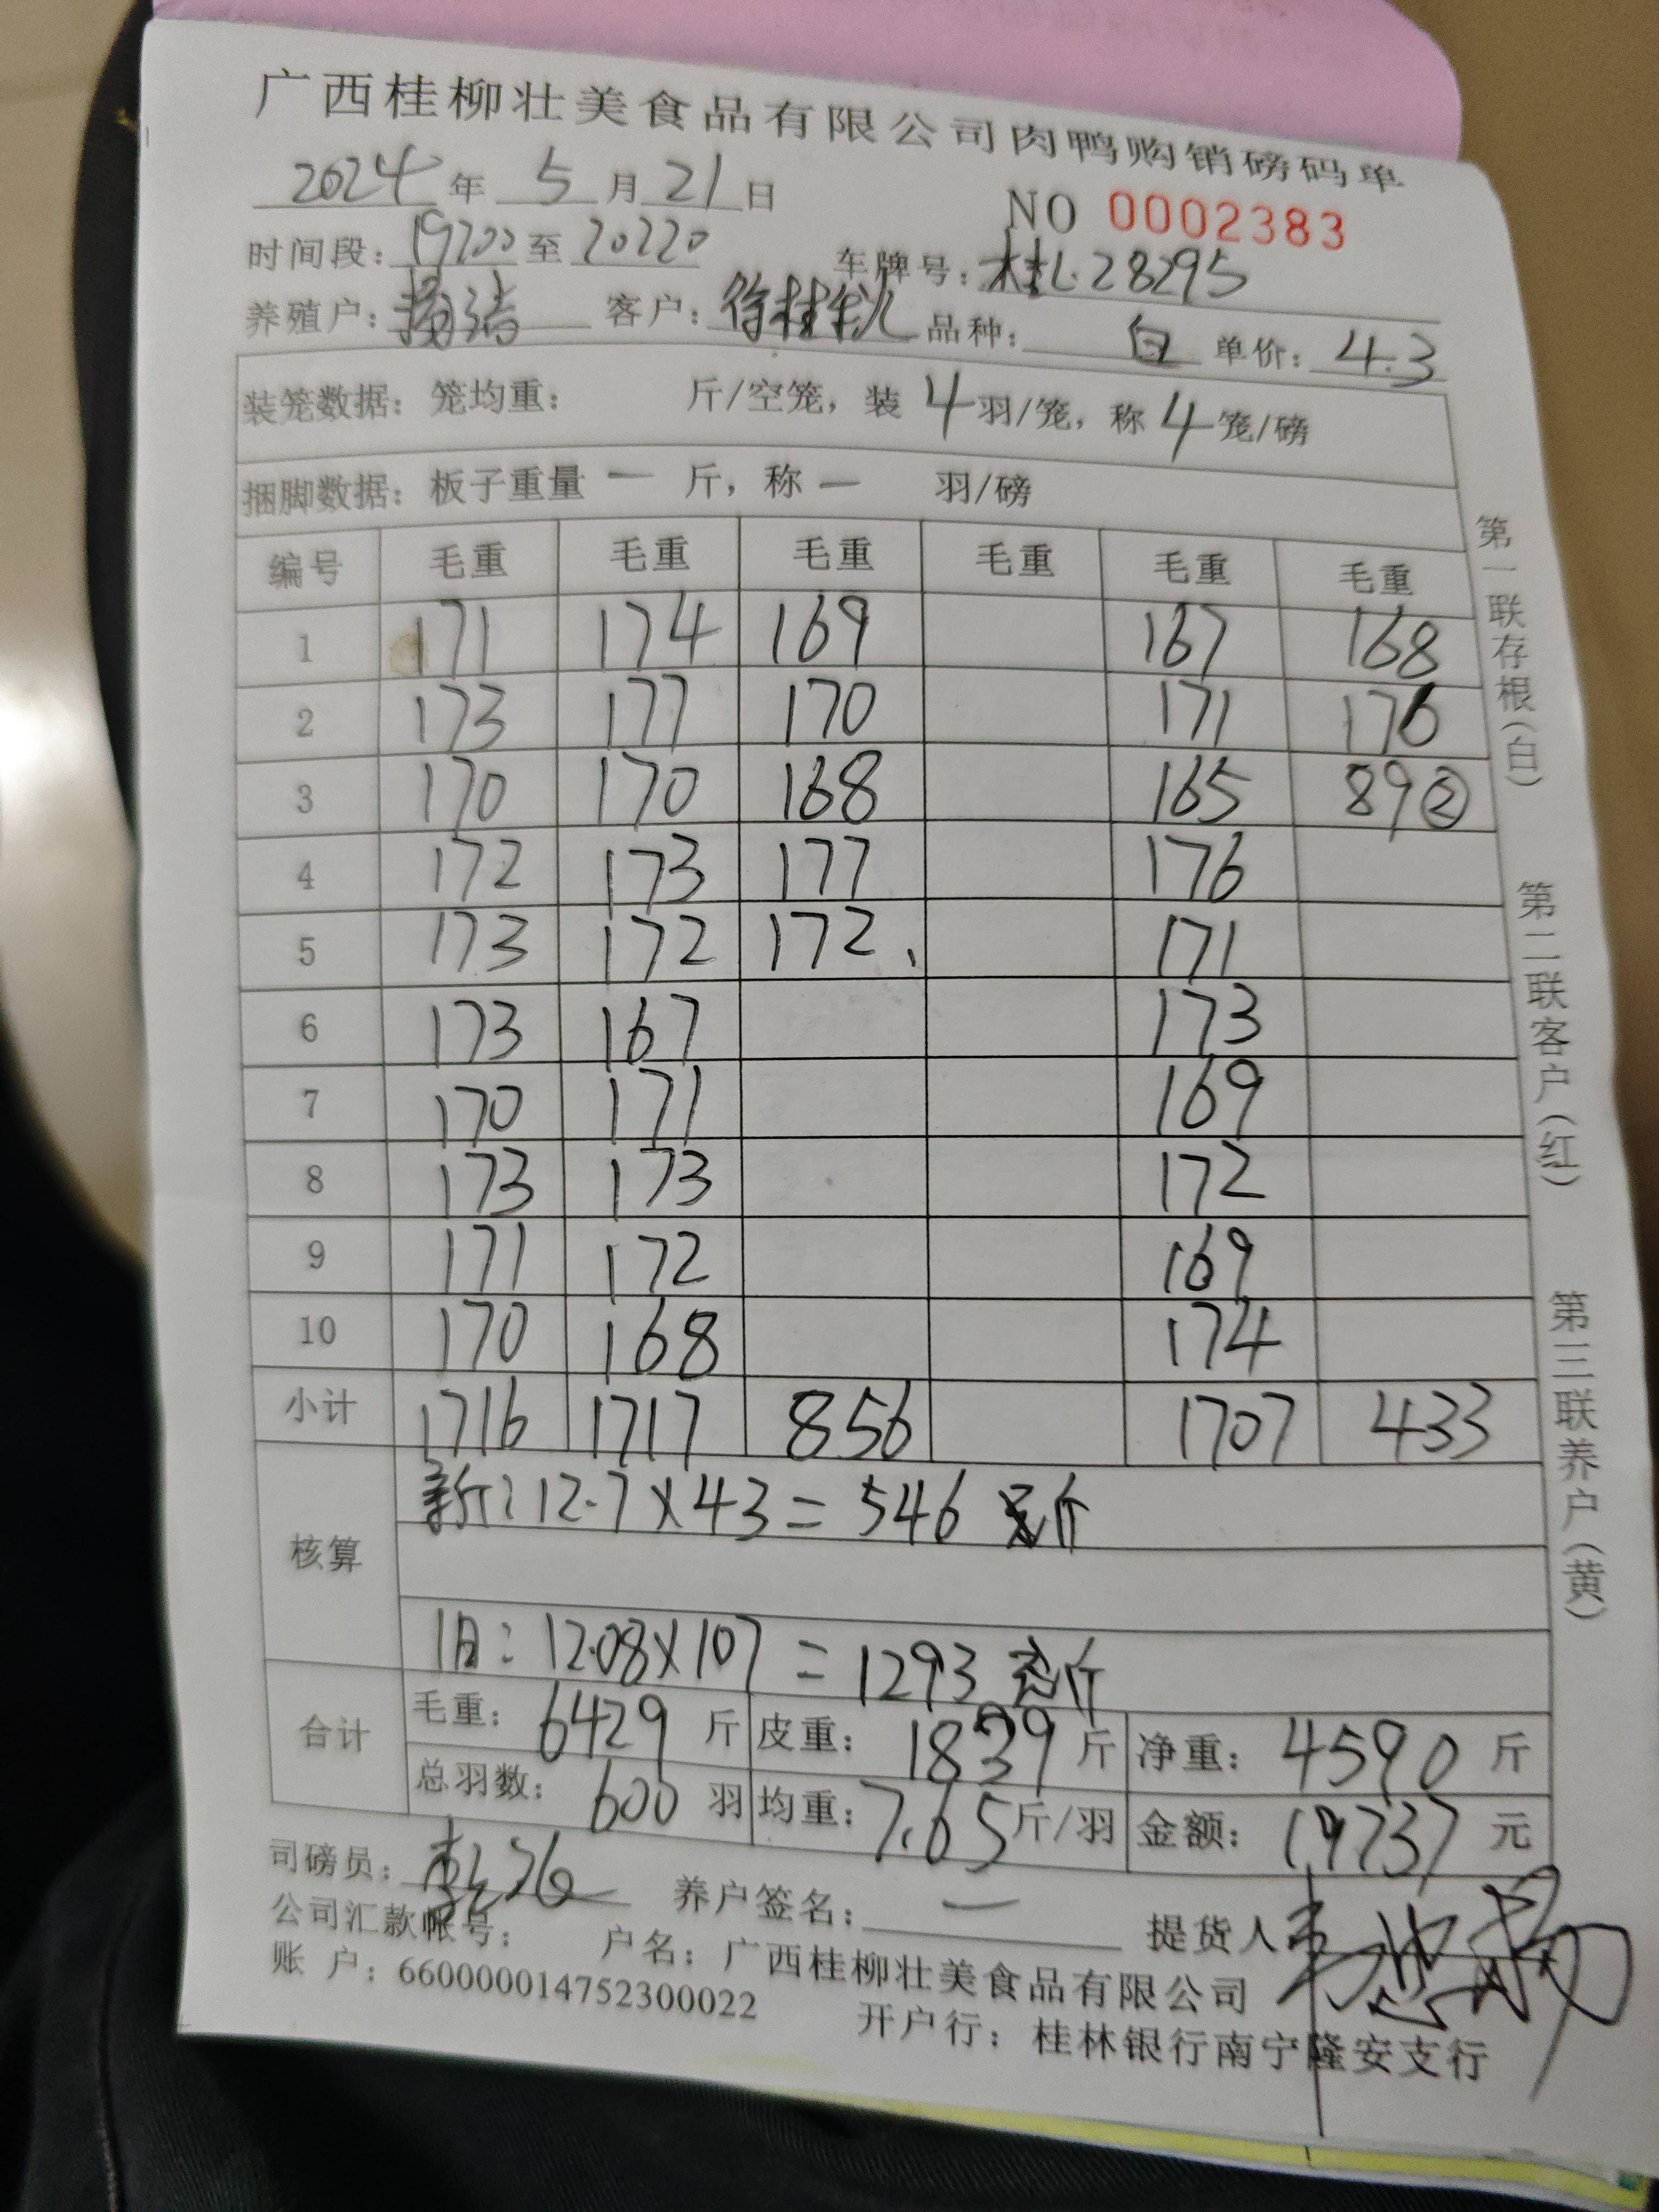 广西桂柳壮美食品有限公司肉鸭购销磅码单
2024 年 5 月 21 日
NO 0002383
时间段: 19:00 至 20:20 车牌号: 桂L·28295
养殖户: 客户: 徐桂 品种: 白 单价: 4.3
装笼数据: 笼均重: 斤/空笼, 装 4 羽/笼, 称 4 笼/磅
捆脚数据: 板子重量 一 斤, 称 一 羽/磅
编号 毛重 毛重 毛重 毛重 毛重 毛重
1 171 174 169 167 168
2 173 177 170 171 176
3 170 170 168 165 89②
4 172 173 177 176
5 173 172 172 171
6 173 167 173
7 170 171 169
8 173 173 172
9 171 172 169
10 170 168 174
小计 1716 1717 856 1707 433
核算
新: 12.7×43=546 斤
旧: 12.08×107=1293 斤
合计
毛重: 6429 斤 皮重: 1839 斤 净重: 4590 斤
总羽数: 600 羽 均重: 7.65 斤/羽 金额: 19737 元
司磅员: 养户签名: 一 提货人
公司汇款帐号: 户名: 广西桂柳壮美食品有限公司
账 户: 660000014752300022 开户行: 桂林银行南宁隆安支行
第一联存根(白) 第二联客户(红) 第三联养户(黄)